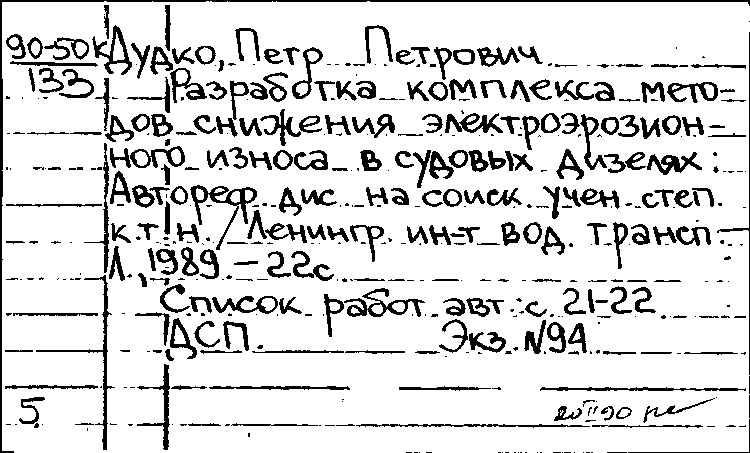 90-50к Дудко, Петр Петрович
133 Разработка комплекса мето-
дов снижения электроэрозион-
ного износа в судовых дизелях:
Автореф дис на соиск. учен. степ.
к.т.н. / Ленингр. ин-т вод. трансп.-
Л., 1989.-22с
Список работ авт.: с. 21-22
ДСП. Экз. №94
5 20 II 90